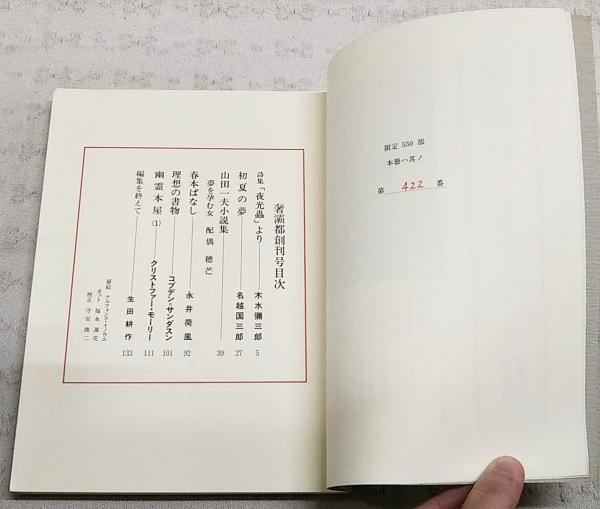 限定 550 部
本冊ハ其ノ
第 422 番
奢灞都創刊号目次
詩集「夜光蟲」より 木水彌三郎 5
初夏の夢 名越国三郎 27
山田一夫小説集 39
夢を孕む女 配偶 穂芒
春本ばなし 永井荷風 92
理想の書物 コブデン=サンダスン 101
幽霊本屋 (1) クリストファー・モーリー 111
編集を終えて 生田耕作 133
扉絵 アルフォンス・イノウエ
カット 福永凋花
校正 守安俊二